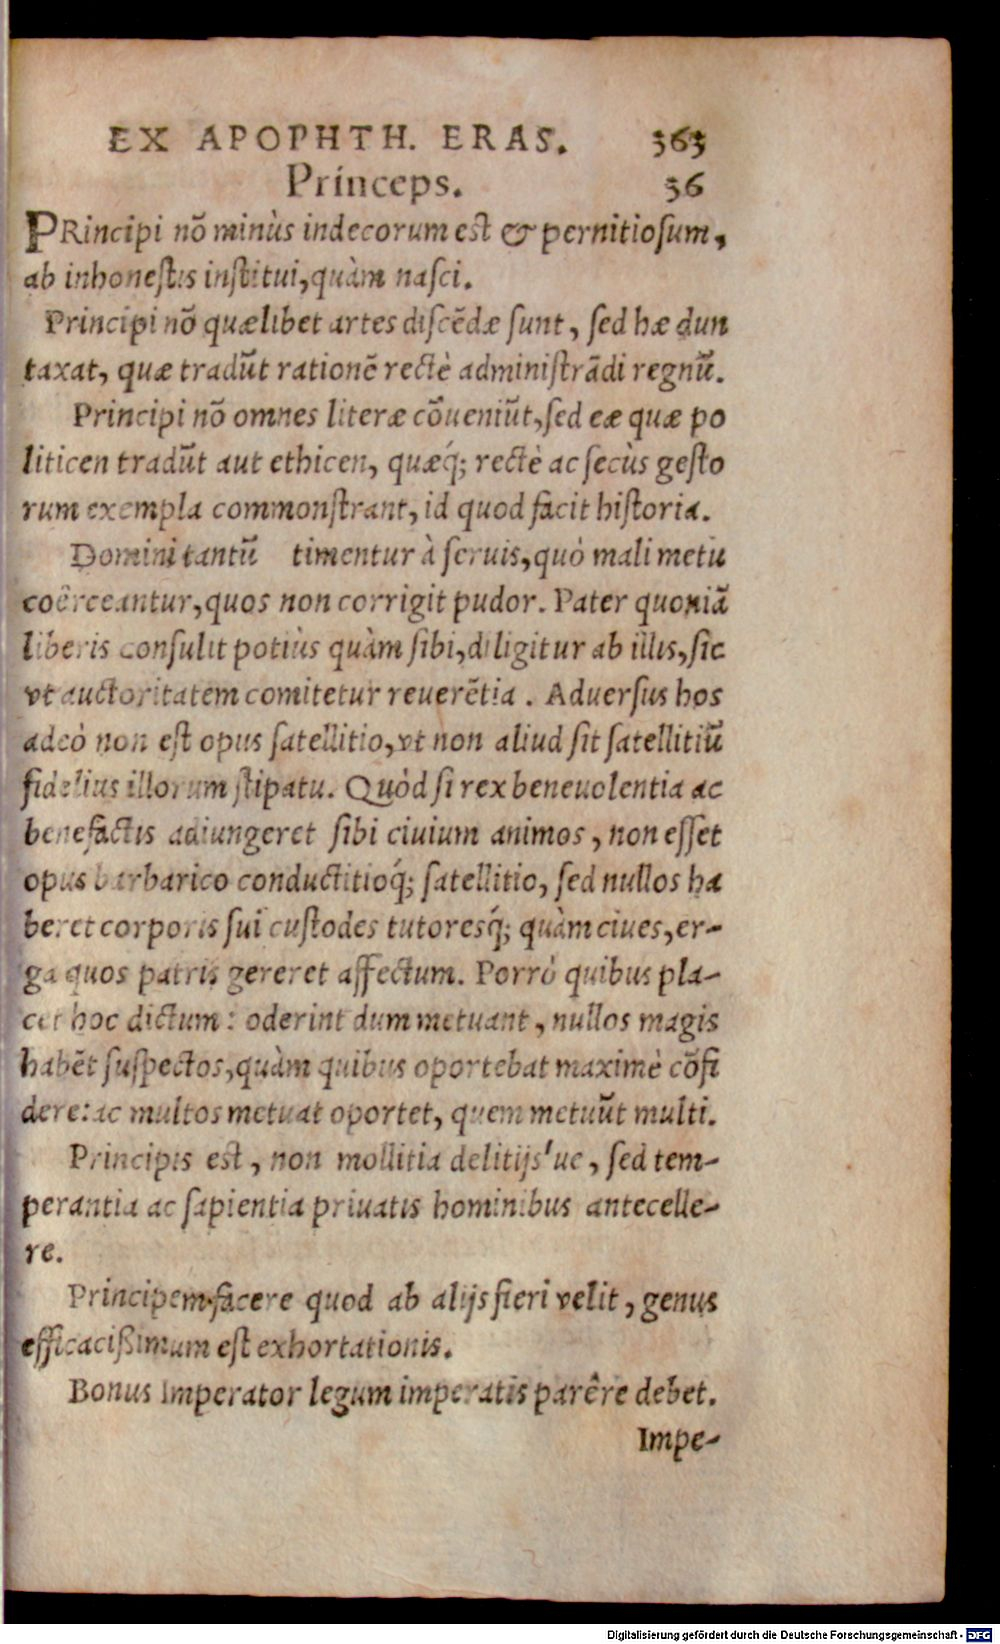 EX APOPHTH. ERAS. 363
Princeps. 36
PRincipi nõ minùs indecorum est & pernitiosum,
ab inhonestis institui, quàm nasci.
Principi nõ quælibet artes discẽdæ sunt, sed hæ dun
taxat, quæ tradũt rationẽ rectè administrãdi regnũ.
Principi nõ omnes literæ cõueniũt, sed eæ quæ po
liticen tradũt aut ethicen, quæq́; rectè ac secùs gesto
rum exempla commonstrant, id quod facit historia.
Domini tantũ timentur à seruis, quò mali metu
coêrceantur, quos non corrigit pudor. Pater quoniã
liberis consulit potiùs quàm sibi, diligitur ab illis, sic
vt auctoritatem comitetur reuerẽtia. Aduersus hos
adeò non est opus satellitio, vt non aliud sit satellitiũ
fidelius illorum stipatu. Quòd si rex beneuolentia ac
benefactis adiungeret sibi ciuium animos, non esset
opus barbarico conductitioq́; satellitio, sed nullos ha
beret corporis sui custodes tutoresq́; quàm ciues, er-
ga quos patris gereret affectum. Porrò quibus pla-
cet hoc dictum: oderint dum metuant, nullos magis
habẽt suspectos, quàm quibus oportebat maximè cõfi
dere: ac multos metuat oportet, quem metuũt multi.
Principis est, non mollitia delitijs'ue, sed tem-
perantia ac sapientia priuatis hominibus antecelle-
re.
Principem facere quod ab alijs fieri velit, genus
efficacißimum est exhortationis.
Bonus Imperator legum imperatis parêre debet.
Impe-
Digitalisierung gefördert durch die Deutsche Forschungsgemeinschaft - DFG